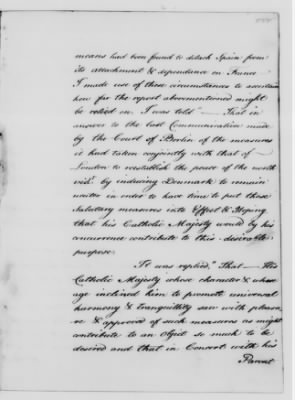 means had been found to detach Spain from
its attachment & dependance on France
I made use of these circumstances to ascertain
how far the report abovementioned might
be relied on. I was told "That in
answer to the last Communication made
by the Court of Berlin of the measures
it had taken conjointly with that of
London to reestablish the peace of the north
vizt by inducing Denmark to remain
neuter in order to have time to put those
salutary measures into Effect & Hoping
that his Catholic Majesty would by his
concurrence contribute to this desireable
purpose
It was replied, "That His
Catholic Majesty whose character & whose
age inclined him to promote universal
harmony & tranquillity saw with pleasu
re & approved of such measures as might
contribute to an object so much to be
desired and that in Concert with his
Parent